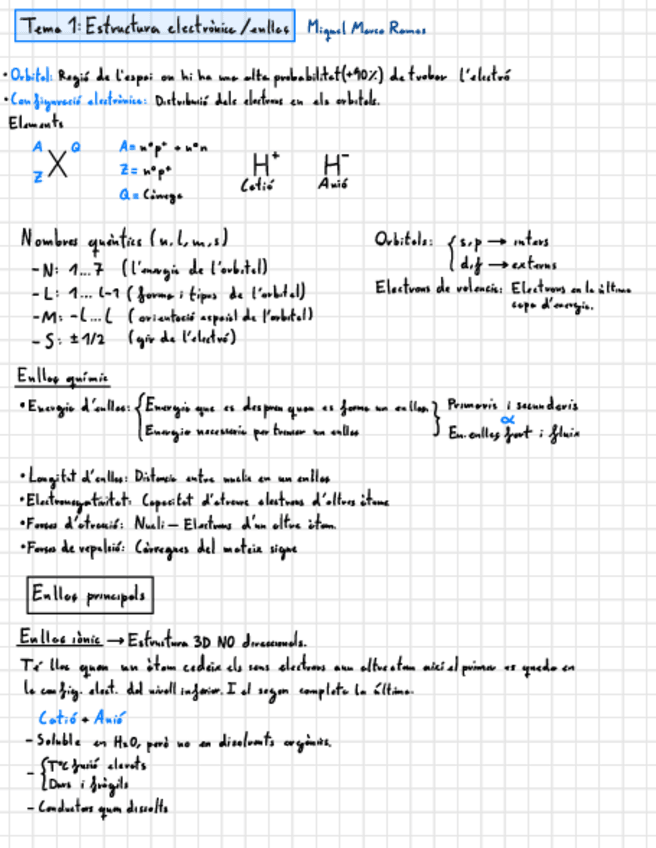 Tema 1: Estructura electrònica/enllaç Miquel Marco Ramos
• Orbital: Regió de l'espai on hi ha una alta probabilitat (+90%) de trobar l'electró
• Configuració electrònica: Distribució dels electrons en els orbitals.
Elements
A X Q
Z
A = nºp⁺ + nºn
Z = nºp⁺
Q = Càrrega
H⁺ H⁻
Catió Anió
Nombres quàntics (n, l, m, s)
- N: 1...7 (l'energia de l'orbital)
- L: 1... L-1 (forma i tipus de l'orbital)
- M: -L...L (orientació espaial de l'orbital)
- S: ± 1/2 (gir de l'electró)
Orbitals: { s,p → interns
d,f → externs
Electrons de valencia: Electrons en la última
capa d'energia.
Enllaç químic
• Energia d'enllaç: { Energia que es despren quan es forma un enllaç
Energia necessaria per trencar un enllaç }
Primaris i secundaris
α
En. enllaç fort i fluix
• Longitut d'enllaç: Distancia entre nuclis en un enllaç
• Electronegativitat: Capacitat d'atraure electrons d'altres àtoms
• Forces d'atracció: Nucli – Electrons d'un altre àtom.
• Forces de repulsió: Càrregues del mateix signe
Enllaç principals
Enllaç iònic → Estructura 3D NO direccionals.
Té lloc quan un àtom cedeix els seus electrons a un altre atom així el primer es queda en
la config. elect. del nivell inferior. I el segon completa la última.
Catió + Anió
- Soluble en H₂O, però no en dissolvents orgànics.
- { TªC fusió elevats
Durs i fràgils
- Conductors quan dissolts